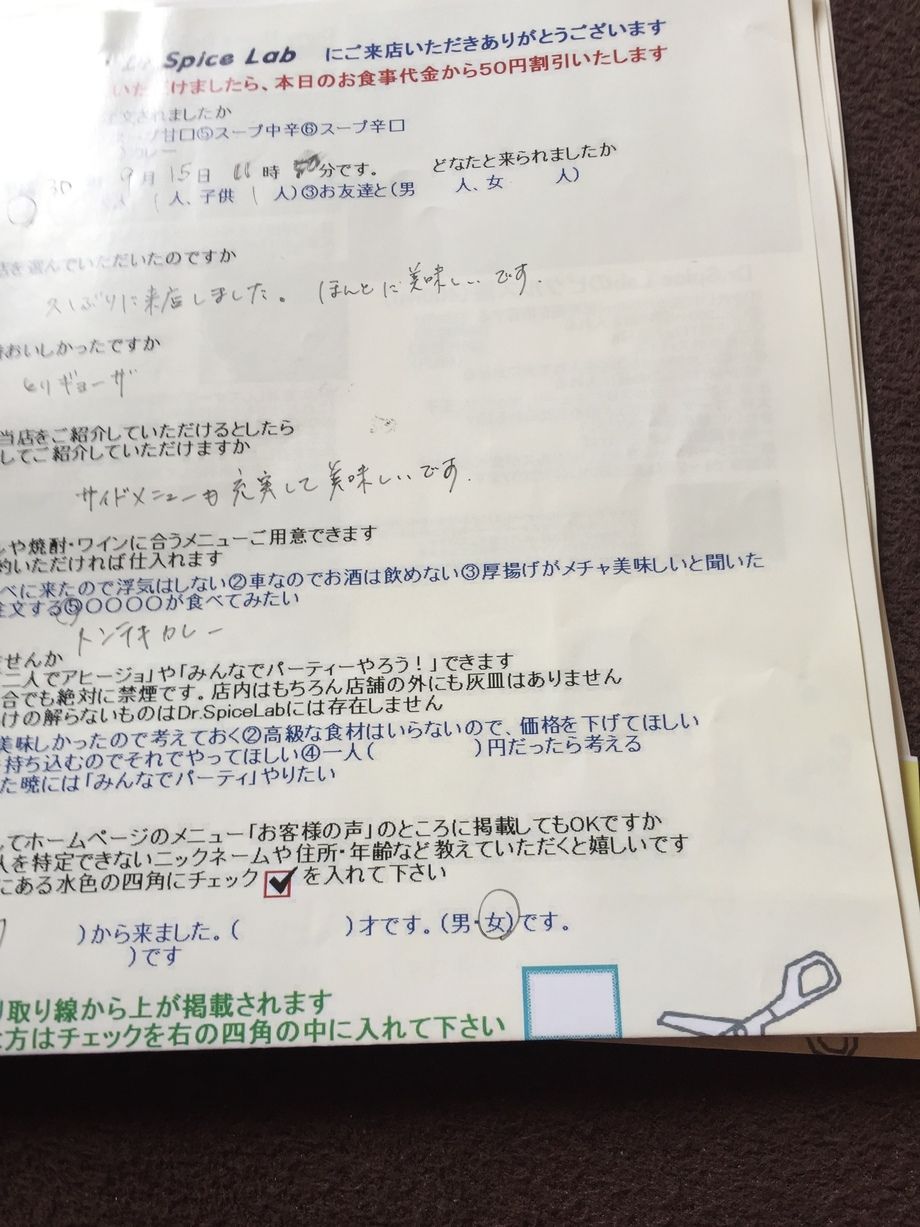 Dr.Spice Lab にご来店いただきありがとうございます
いただけましたら、本日のお食事代金から50円割引いたします
文されましたか
甘口⑤スープ中辛⑥スープ辛口
カレー
30 9月15日 11時 分です。 どなたと来られましたか
人、子供 1 人)③お友達と(男 人、女 人)
店を選んでいただいたのですか
久しぶりに来店しました。ほんとに美味しいです.
おいしかったですか
セリギョーザ
当店をご紹介していただけるとしたら
してご紹介していただけますか
サイドメニューも充実して美味しいです.
や焼酎・ワインに合うメニューご用意できます
約いただければ仕入れます
べに来たので浮気はしない②車なのでお酒は飲めない③厚揚げがメチャ美味しいと聞いた
注文する⑤〇〇〇〇が食べてみたい
トンテキカレー
ませんか
二人でアヒージョ」や「みんなでパーティーやろう！」できます
合でも絶対に禁煙です。店内はもちろん店舗の外にも灰皿はありません
けの解らないものはDr.SpiceLabには存在しません
美味しかったので考えておく②高級な食材はいらないので、価格を下げてほしい
持ち込むのでそれでやってほしい④一人( )円だったら考える
た暁には「みんなでパーティ」やりたい
してホームページのメニュー「お客様の声」のところに掲載してもOKですか
人を特定できないニックネームや住所・年齢など教えていただくと嬉しいです
にある水色の四角にチェック を入れて下さい
)から来ました。( )才です。(男・女)です。
)です
り取り線から上が掲載されます
な方はチェックを右の四角の中に入れて下さい